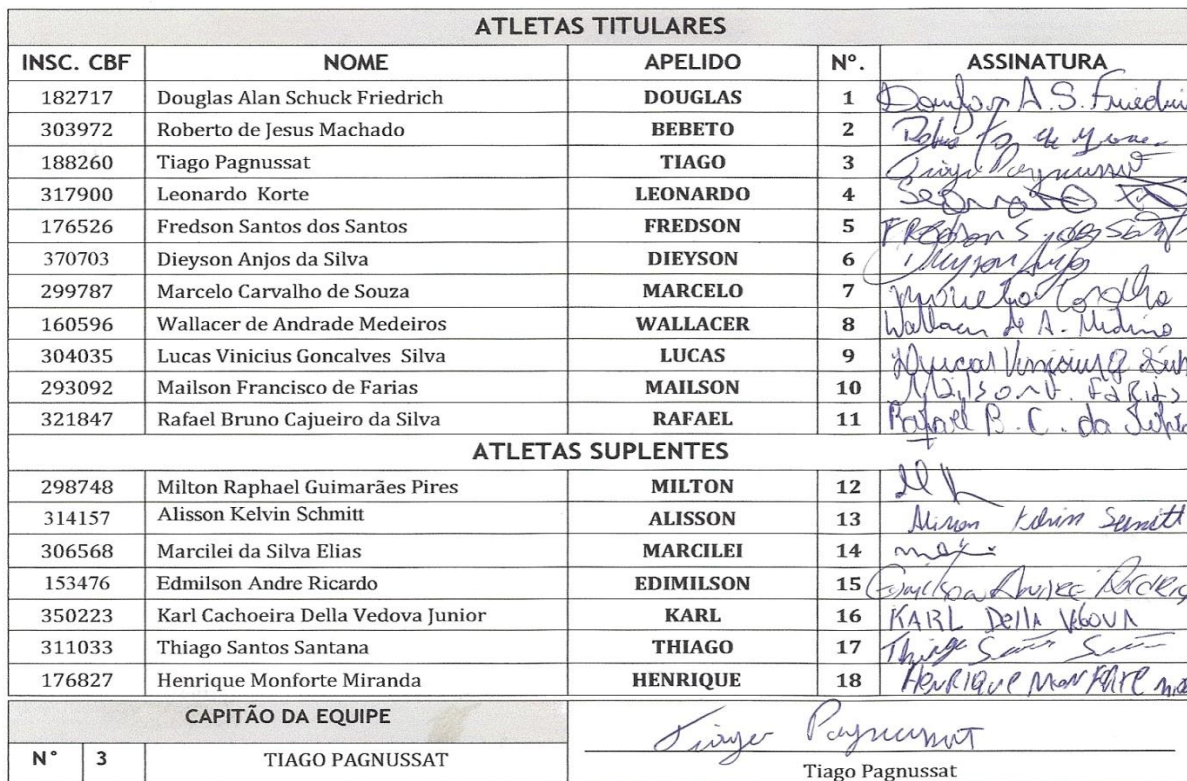 ATLETAS TITULARES
INSC. CBF NOME APELIDO Nº. ASSINATURA
182717 Douglas Alan Schuck Friedrich DOUGLAS 1 A. S. Friedri
303972 Roberto de Jesus Machado BEBETO 2
188260 Tiago Pagnussat TIAGO 3 Tiago Pagnussat
317900 Leonardo Korte LEONARDO 4
176526 Fredson Santos dos Santos FREDSON 5 FRedson S
370703 Dieyson Anjos da Silva DIEYSON 6 Dieyson Anjos
299787 Marcelo Carvalho de Souza MARCELO 7
160596 Wallacer de Andrade Medeiros WALLACER 8 Wallacer de A.
304035 Lucas Vinicius Goncalves Silva LUCAS 9 Lucas Vinicius G
293092 Mailson Francisco de Farias MAILSON 10 Mailson F. FaRias
321847 Rafael Bruno Cajueiro da Silva RAFAEL 11 Rafael B. C. da Silva
ATLETAS SUPLENTES
298748 Milton Raphael Guimarães Pires MILTON 12
314157 Alisson Kelvin Schmitt ALISSON 13
306568 Marcilei da Silva Elias MARCILEI 14
153476 Edmilson Andre Ricardo EDIMILSON 15
350223 Karl Cachoeira Della Vedova Junior KARL 16 KARL Della
311033 Thiago Santos Santana THIAGO 17 Thiago
176827 Henrique Monforte Miranda HENRIQUE 18 HenRique MonForte
CAPITÃO DA EQUIPE
Tiago Pagnussat
N° 3 TIAGO PAGNUSSAT Tiago Pagnussat